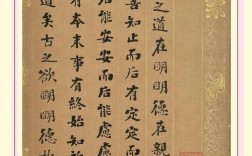 之道在明明德在親
善知止而后有定定而
后能安安而后能慮慮
有本末事有終始知所
道矣古之欲明明德於